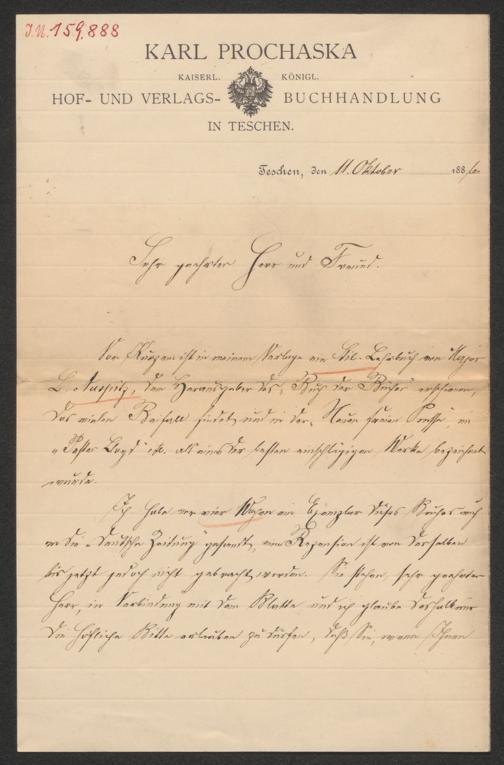 J.N. 159.888
KARL PROCHASKA
KAISERL. KÖNIGL.
HOF- UND VERLAGS- BUCHHANDLUNG
IN TESCHEN.
Teschen, den 11. Oktober 188
Sehr geehrter Herr und Freund.
Vor Kurzem ist in meinem Verlage ein Stil-Lehrbuch von Major
L. Auspitz, dem Herausgeber des "Buch der Bücher" erschienen,
das vielen Beifall findet und in der "Neuen freien Presse", im
"Pester Lloyd" etc. als eines der besten einschlägigen Werke bezeichnet
wurde.
Ich habe vor vier Wochen ein Exemplar dieses Buches auch
an die "Deutsche Zeitung" gesandt, eine Rezension ist von derselben
bis jetzt jedoch nicht gebracht worden. Sie stehen, sehr geehrter
Herr, in Verbindung mit dem Blatte und ich glaube deshalb mir
die höfliche Bitte erlauben zu dürfen, daß Sie, wenn Ihnen